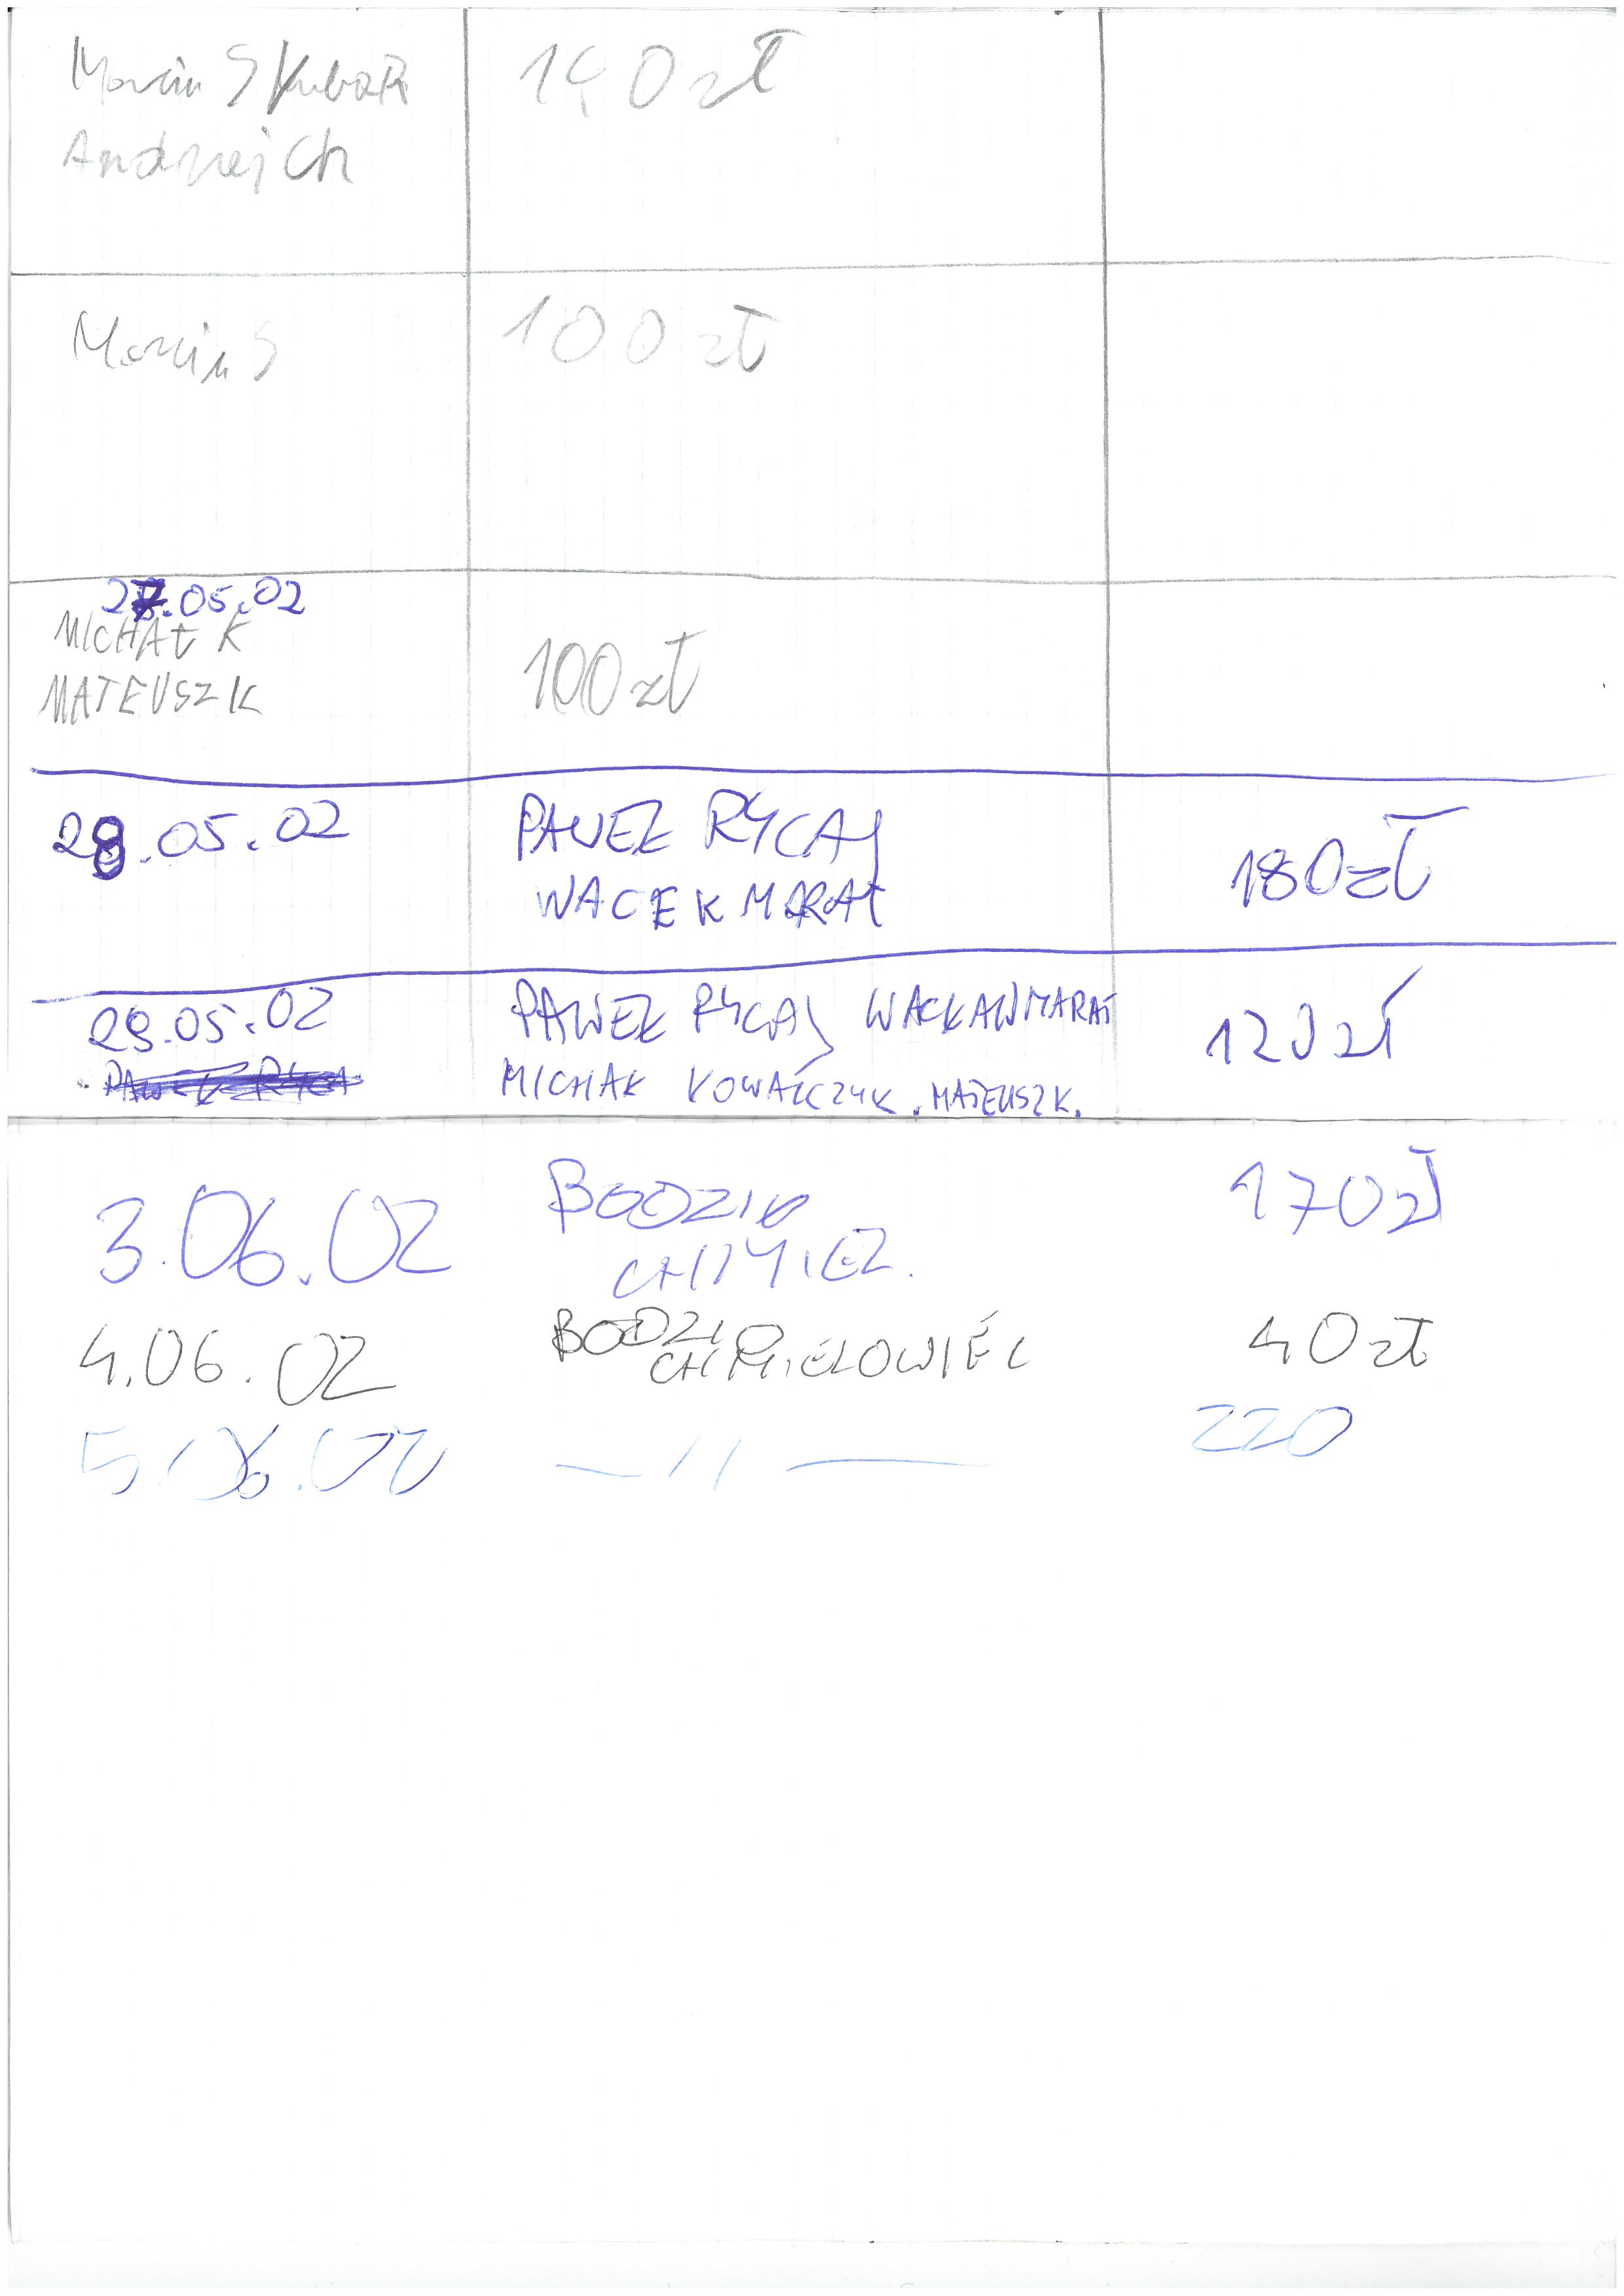 Marcin S Kuba R 140 zł
Andrzej Ch
Marcin S 100 zł
27.05.02
MICHAŁ K
MATEUSZ K 100 zł
28.05.02 PAWEŁ RYCAJ 180 zł
WACEK MARAT
29.05.02 PAWEŁ RYCAJ WACŁAW MARAT 120 zł
PAWEŁ RYCA MICHAŁ KOWALCZYK. MATEUSZ K.
3.06.02 BODZIO 170 zł
CHMIEL.
4.06.02 BODZIO 40 zł
CHMIELOWIEC
5.06.02 —11— 220